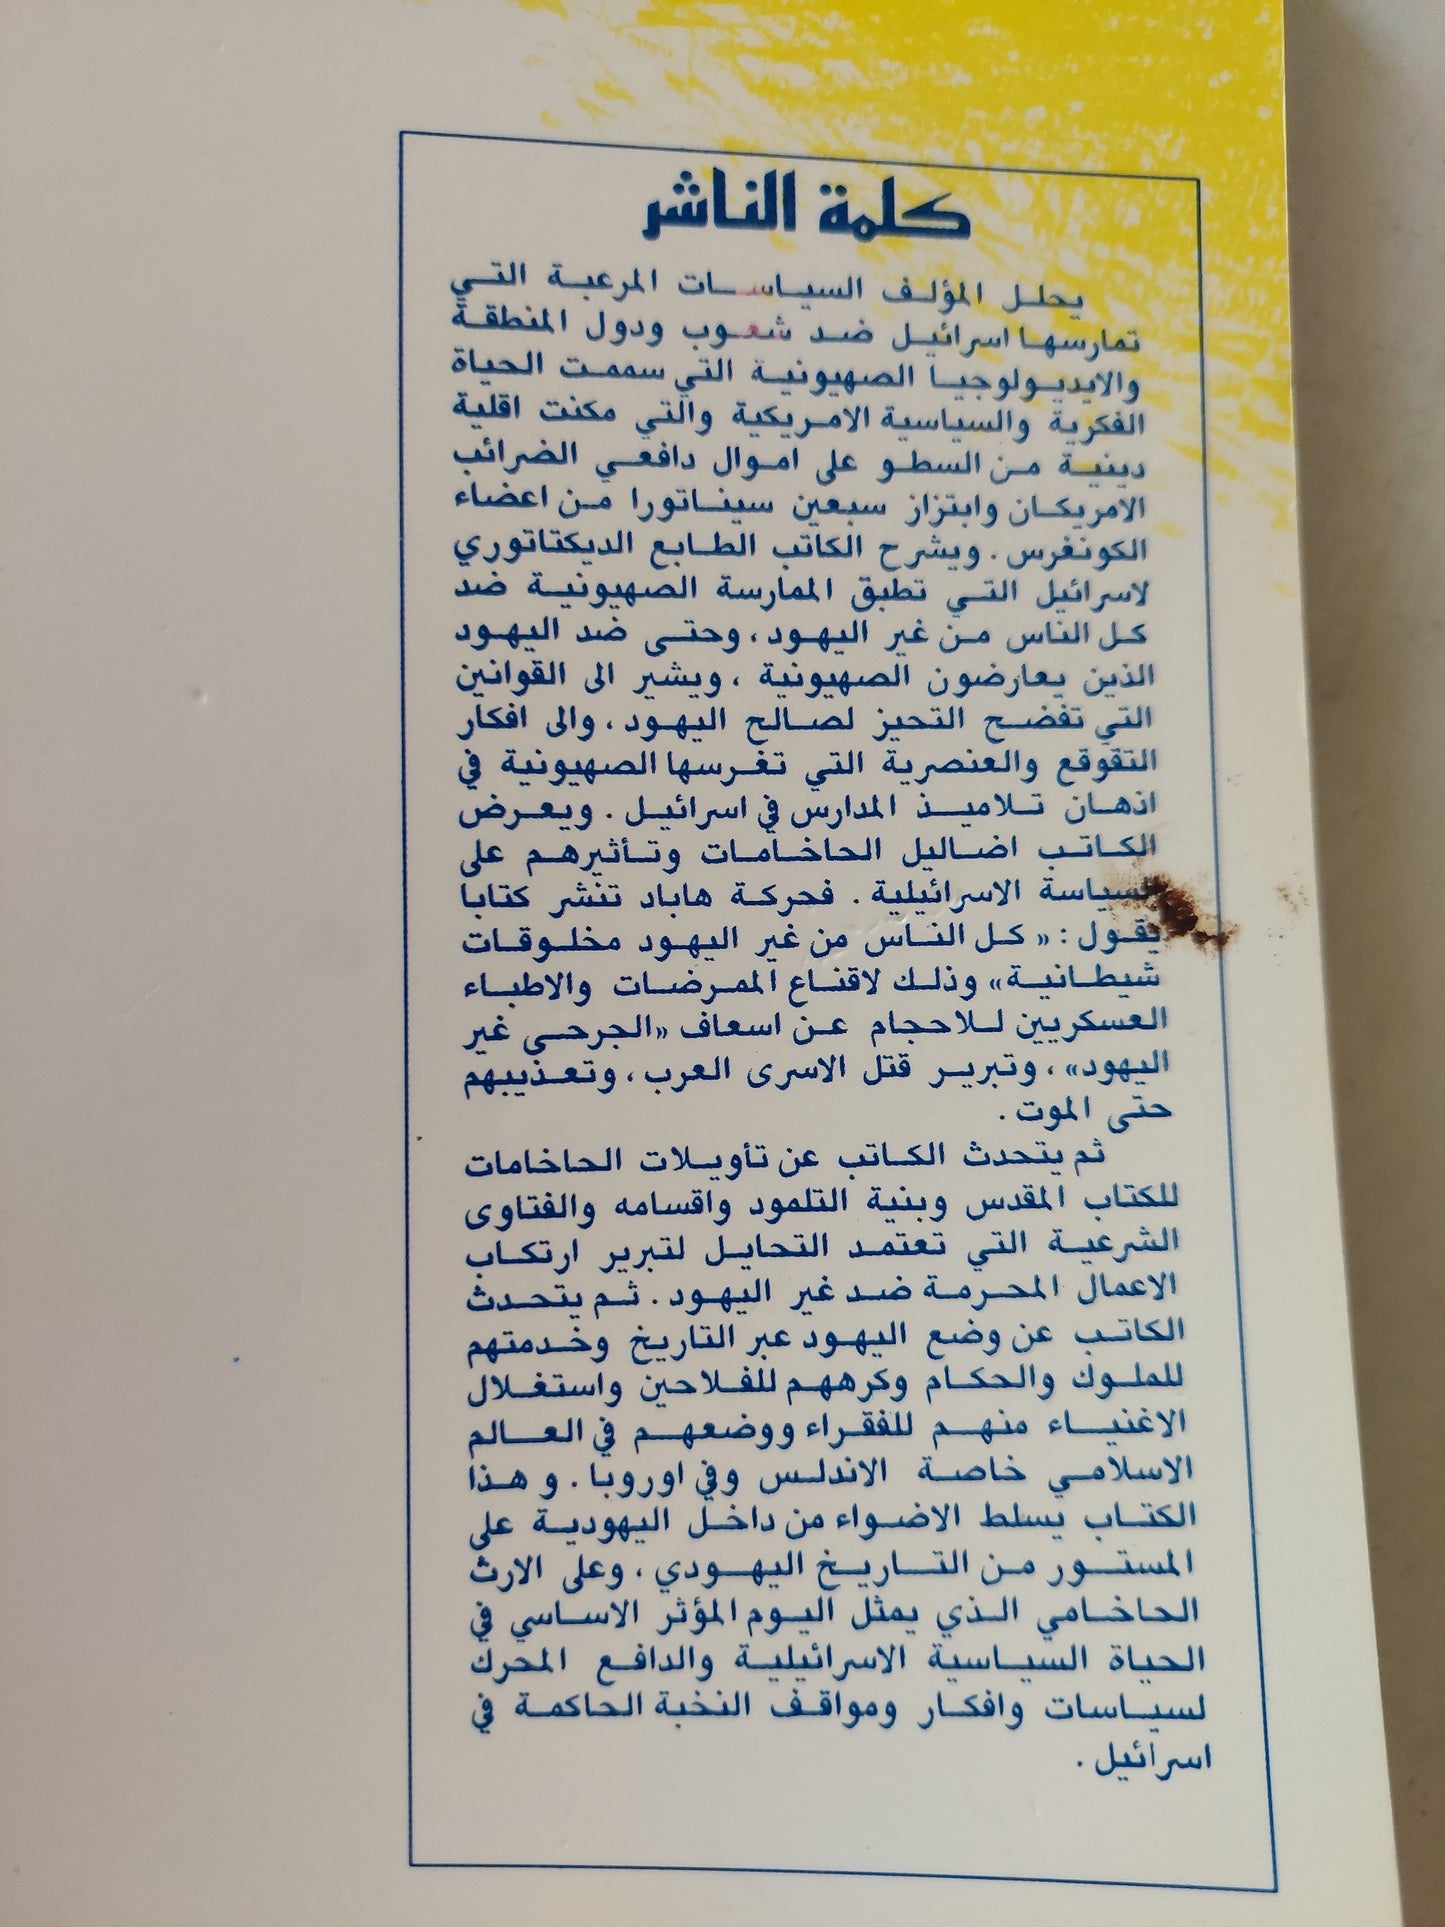 كلمة الناشر
يحلل المؤلف السياسات المرعبة التي
تمارسها اسرائيل ضد شعوب ودول المنطقة
والايديولوجيا الصهيونية التي سممت الحياة
الفكرية والسياسية الامريكية والتي مكنت اقلية
دينية من السطو على اموال دافعي الضرائب
الامريكان وابتزاز سبعين سيناتورا من اعضاء
الكونغرس . ويشرح الكاتب الطابع الديكتاتوري
لاسرائيل التي تطبق الممارسة الصهيونية ضد
كل الناس من غير اليهود ، وحتى ضد اليهود
الذين يعارضون الصهيونية ، ويشير الى القوانين
التي تفضح التحيز لصالح اليهود ، والى افكار
التقوقع والعنصرية التي تغرسها الصهيونية في
اذهان تلاميذ المدارس في اسرائيل . ويعرض
الكاتب اضاليل الحاخامات وتأثيرهم على
السياسة الاسرائيلية . فحركة هاباد تنشر كتابا
يقول : « كل الناس من غير اليهود مخلوقات
شيطانية» وذلك لاقناع الممرضات والاطباء
العسكريين للاحجام عن اسعاف «الجرحى غير
اليهود» ، وتبرير قتل الاسرى العرب ، وتعذيبهم
حتى الموت .
ثم يتحدث الكاتب عن تأويلات الحاخامات
للكتاب المقدس وبنية التلمود واقسامه والفتاوى
الشرعية التي تعتمد التحايل لتبرير ارتكاب
الاعمال المحرمة ضد غير اليهود . ثم يتحدث
الكاتب عن وضع اليهود عبر التاريخ وخدمتهم
للملوك والحكام وكرههم للفلاحين واستغلال
الاغنياء منهم للفقراء ووضعهم في العالم
الاسلامي خاصة الاندلس وفي اوروبا . و هذا
الكتاب يسلط الاضواء من داخل اليهودية على
المستور من التاريخ اليهودي ، وعلى الارث
الحاخامي الذي يمثل اليوم المؤثر الاساسي في
الحياة السياسية الاسرائيلية والدافع المحرك
لسياسات وافكار ومواقف النخبة الحاكمة في
اسرائيل .